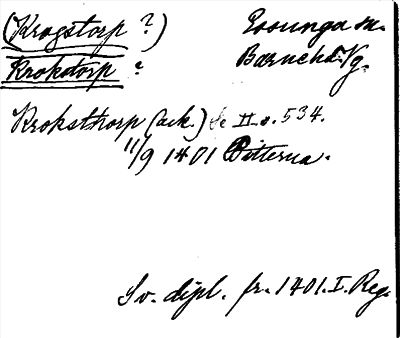 (Krogstorp ?) Essunga sn.
Krokstorp ? Barnehd. Vg.
Kroksthorp (ack.) se II s. 534.
11/9 1401 Bitterna.
Sv. dipl. fr. 1401. I. Reg.